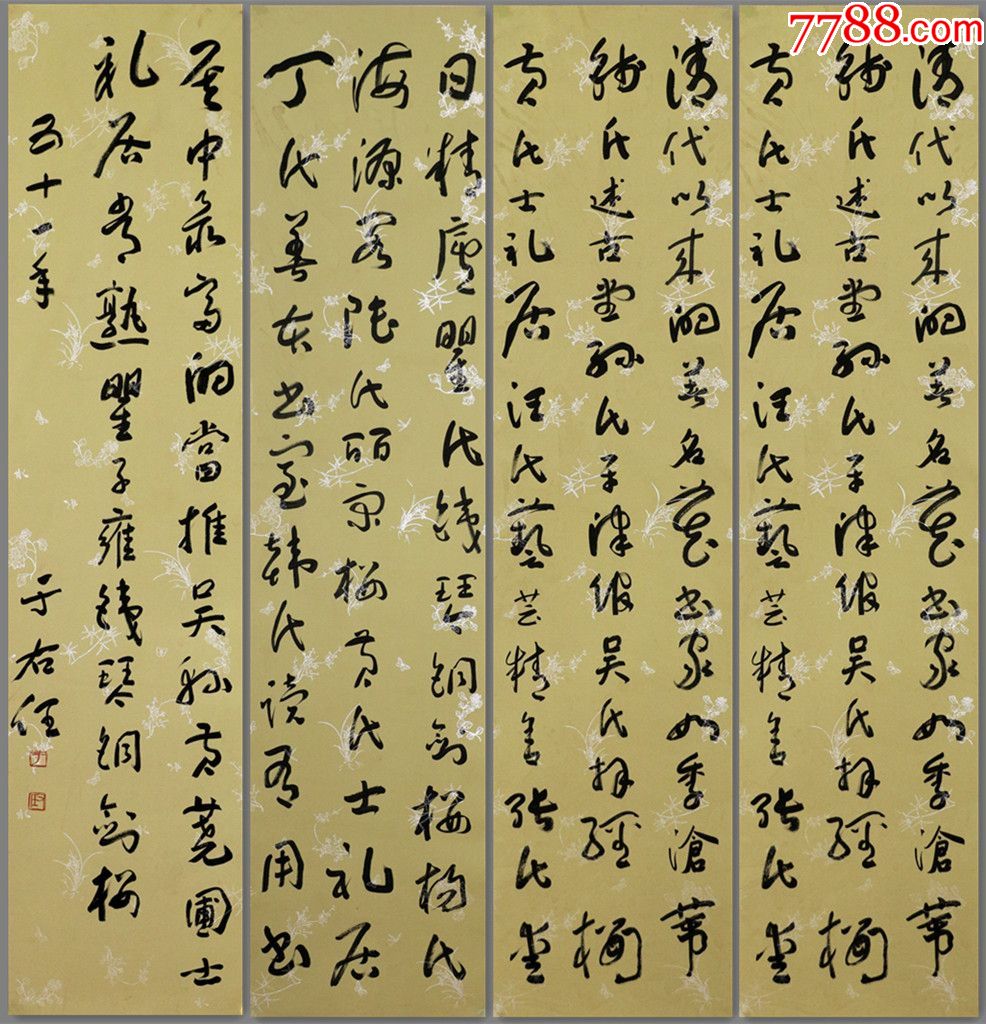 7788.com
清代以來的著名藏書家如季滄葦
錢氏述古堂孫氏平津館吳氏拜經樓
黃氏士礼居汪氏藝芸精舍張氏愛
清代以來的著名藏書家如季滄葦
錢氏述古堂孫氏平津館吳氏拜經樓
黃氏士礼居汪氏藝芸精舍張氏愛
日精廬瞿氏鐵琴銅劍樓楊氏
海源閣陸氏皕宋樓黃氏士礼居
丁氏善本書室韓氏讀有用書
其中最富的當推吳縣黃蕘圃士
礼居常熟瞿子雍鐵琴銅劍樓
五十一年 于右任